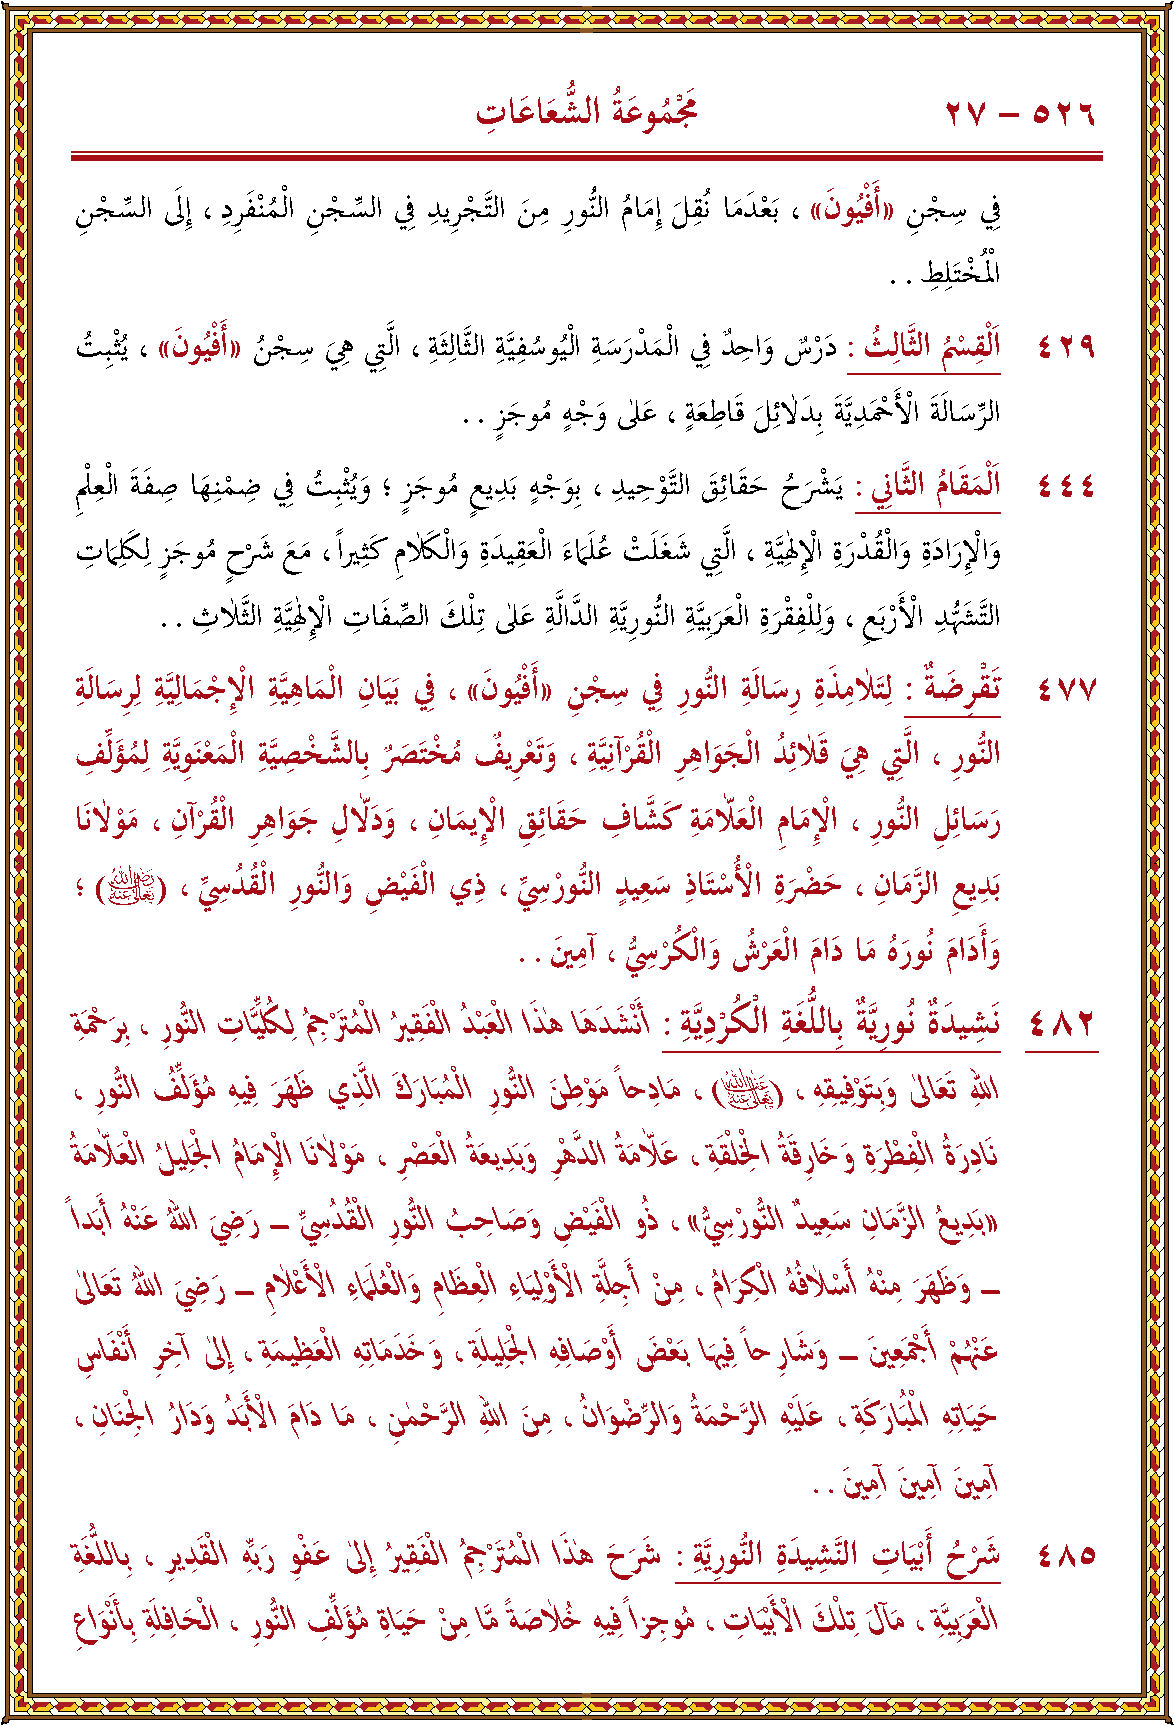 ٥٢٦ – ٢٧ مَجْمُوعَةُ الشُّعَاعَاتِ
فِي سِجْنِ «أَفْيُونَ» ، بَعْدَمَا نُقِلَ إِمَامُ النُّورِ مِنَ التَّجْرِيدِ فِي السِّجْنِ الْمُنْفَرِدِ ، إِلَى السِّجْنِ
الْمُخْتَلِطِ . .
٤٢٩ اَلْقِسْمُ الثَّالِثُ : دَرْسٌ وَاحِدٌ فِي الْمَدْرَسَةِ الْيُوسُفِيَّةِ الثَّالِثَةِ ، الَّتِي هِيَ سِجْنُ «أَفْيُونَ» ، يُثْبِتُ
الرِّسَالَةَ الْأَحْمَدِيَّةَ بِدَلَائِلَ قَاطِعَةٍ ، عَلٰى وَجْهٍ مُوجَزٍ . .
٤٤٤ اَلْمَقَامُ الثَّانِي : يَشْرَحُ حَقَائِقَ التَّوْحِيدِ ، بِوَجْهٍ بَدِيعٍ مُوجَزٍ ؛ وَيُثْبِتُ فِي ضِمْنِهَا صِفَةَ الْعِلْمِ
وَالْإِرَادَةِ وَالْقُدْرَةِ الْإِلٰهِيَّةِ ، الَّتِي شَغَلَتْ عُلَمَاءَ الْعَقِيدَةِ وَالْكَلَامِ كَثِيراً ، مَعَ شَرْحٍ مُوجَزٍ لِكَلِمَاتِ
التَّشَهُّدِ الْأَرْبَعِ ، وَلِلْفِقْرَةِ الْعَرَبِيَّةِ النُّورِيَّةِ الدَّالَّةِ عَلٰى تِلْكَ الصِّفَاتِ الْإِلٰهِيَّةِ الثَّلَاثِ . .
٤٧٧ تَقْرِضَةٌ : لِتَلَامِذَةِ رِسَالَةِ النُّورِ فِي سِجْنِ «أَفْيُونَ» ، فِي بَيَانِ الْمَاهِيَّةِ الْإِجْمَالِيَّةِ لِرِسَالَةِ
النُّورِ ، الَّتِي هِيَ قَلَائِدُ الْجَوَاهِرِ الْقُرْآنِيَّةِ ، وَتَعْرِيفٌ مُخْتَصَرٌ بِالشَّخْصِيَّةِ الْمَعْنَوِيَّةِ لِمُؤَلِّفِ
رَسَائِلِ النُّورِ ، الْإِمَامِ الْعَلَّامَةِ كَشَّافِ حَقَائِقِ الْإِيمَانِ ، وَدَلَّالِ جَوَاهِرِ الْقُرْآنِ ، مَوْلَانَا
بَدِيعِ الزَّمَانِ ، حَضْرَةِ الْأُسْتَاذِ سَعِيدٍ النُّورْسِيِّ ، ذِي الْفَيْضِ وَالنُّورِ الْقُدُسِيِّ ، (رَضِيَ اللهُ تَعَالَى عَنْهُ) ؛
وَأَدَامَ نُورَهُ مَا دَامَ الْعَرْشُ وَالْكُرْسِيُّ ، آمِينَ . .
٤٨٢ نَشِيدَةٌ نُورِيَّةٌ بِاللُّغَةِ الْكُرْدِيَّةِ : أَنْشَدَهَا هٰذَا الْعَبْدُ الْفَقِيرُ الْمُتَرْجِمُ لِكُلِّيَّاتِ النُّورِ ، بِرَحْمَةِ
اللهِ تَعَالٰى وَبِتَوْفِيقِهِ ، (عَزَّ وَجَلَّ) ، مَادِحاً مَوْطِنَ النُّورِ الْمُبَارَكَ الَّذِي ظَهَرَ فِيهِ مُؤَلِّفُ النُّورِ ،
نَادِرَةُ الْفِطْرَةِ وَخَارِقَةُ الْخِلْقَةِ ، عَلَّامَةُ الدَّهْرِ وَبَدِيعَةُ الْعَصْرِ ، مَوْلَانَا الْإِمَامُ الْجَلِيلُ الْعَلَّامَةُ
«بَدِيعُ الزَّمَانِ سَعِيدٌ النُّورْسِيُّ» ، ذُو الْفَيْضِ وَصَاحِبُ النُّورِ الْقُدُسِيِّ – رَضِيَ اللهُ عَنْهُ أَبَداً
– وَظَهَرَ مِنْهُ أَسْلَافُهُ الْكِرَامُ ، مِنْ أَجِلَّةِ الْأَوْلِيَاءِ الْعِظَامِ وَالْعُلَمَاءِ الْأَعْلَامِ – رَضِيَ اللهُ تَعَالٰى
عَنْهُمْ أَجْمَعِينَ – وَشَارِحاً فِيهَا بَعْضَ أَوْصَافِهِ الْجَلِيلَةِ ، وَخَدَمَاتِهِ الْعَظِيمَةِ ، إِلٰى آخِرِ أَنْفَاسِ
حَيَاتِهِ الْمُبَارَكَةِ ، عَلَيْهِ الرَّحْمَةُ وَالرِّضْوَانُ ، مِنَ اللهِ الرَّحْمٰنِ ، مَا دَامَ الْأَبَدُ وَدَارُ الْجِنَانِ ،
آمِينَ آمِينَ آمِينَ . .
٤٨٥ شَرْحُ أَبْيَاتِ النَّشِيدَةِ النُّورِيَّةِ : شَرَحَ هٰذَا الْمُتَرْجِمُ الْفَقِيرُ إِلٰى عَفْوِ رَبِّهِ الْقَدِيرِ ، بِاللُّغَةِ
الْعَرَبِيَّةِ ، مَآلَ تِلْكَ الْأَبْيَاتِ ، مُوجِزاً فِيهِ خُلَاصَةً مَّا مِنْ حَيَاةِ مُؤَلِّفِ النُّورِ ، الْحَافِلَةِ بِأَنْوَاعِ